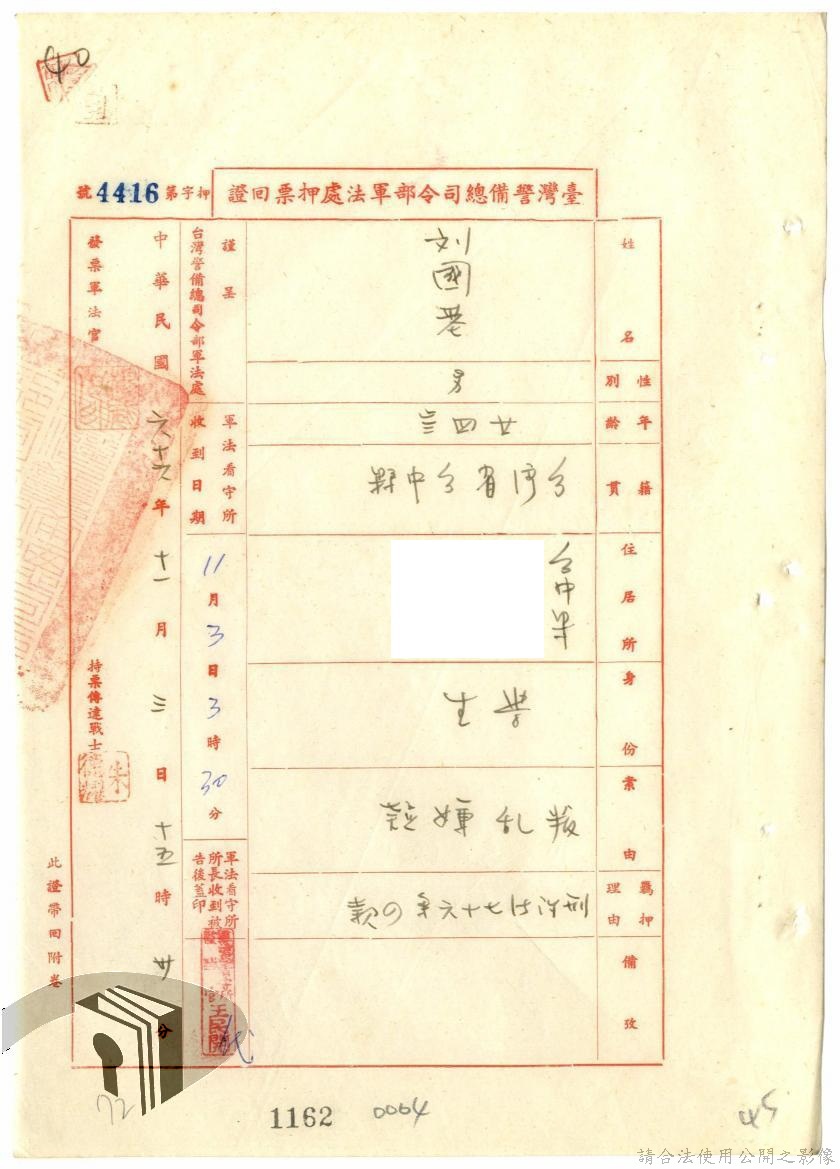 40
臺灣警備總司令部軍法處押票回證
押字第4416號
姓名
刘國
性別
男
年齡
廿四岁
籍貫
台湾省台中縣
住居所
台中
身份
学生
案由
叛乱嫌疑
羈押理由
刑訴法七十六条四款
備攷
謹呈
台灣警備總司令部軍法處
軍法看守所收到日期
11月3日3時30分
軍法看守所所長收到被告後蓋印
王民
代
中華民國六十六年十一月三日十五時卅分
發票軍法官
持票傳達戰士
朱
此證帶回附卷
72
1162
0064
45
請合法使用公開之影像